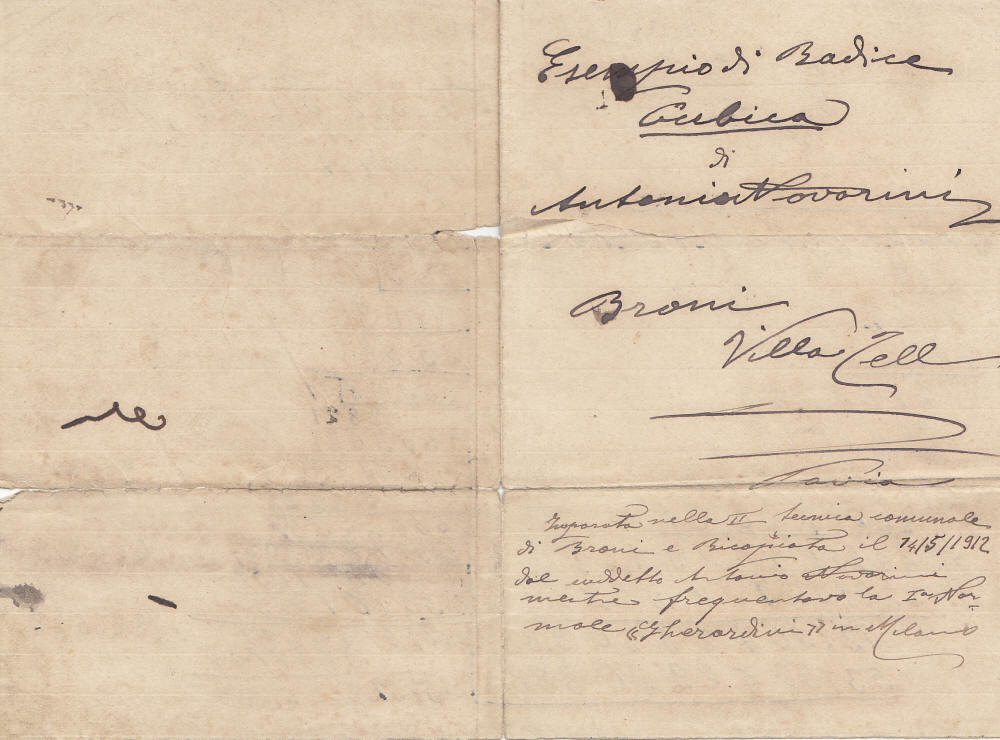 Esempio di Radice
Cubica
di
Antonio Novarini
Broni
Villa Zell
Pavia
Imparata nella II tecnica comunale
di Broni e Ricopiata il 14/5/1912
dal suddetto Antonio Novarini
mentre frequentavo la Iª Nor-
male «Gherardini» in Milano